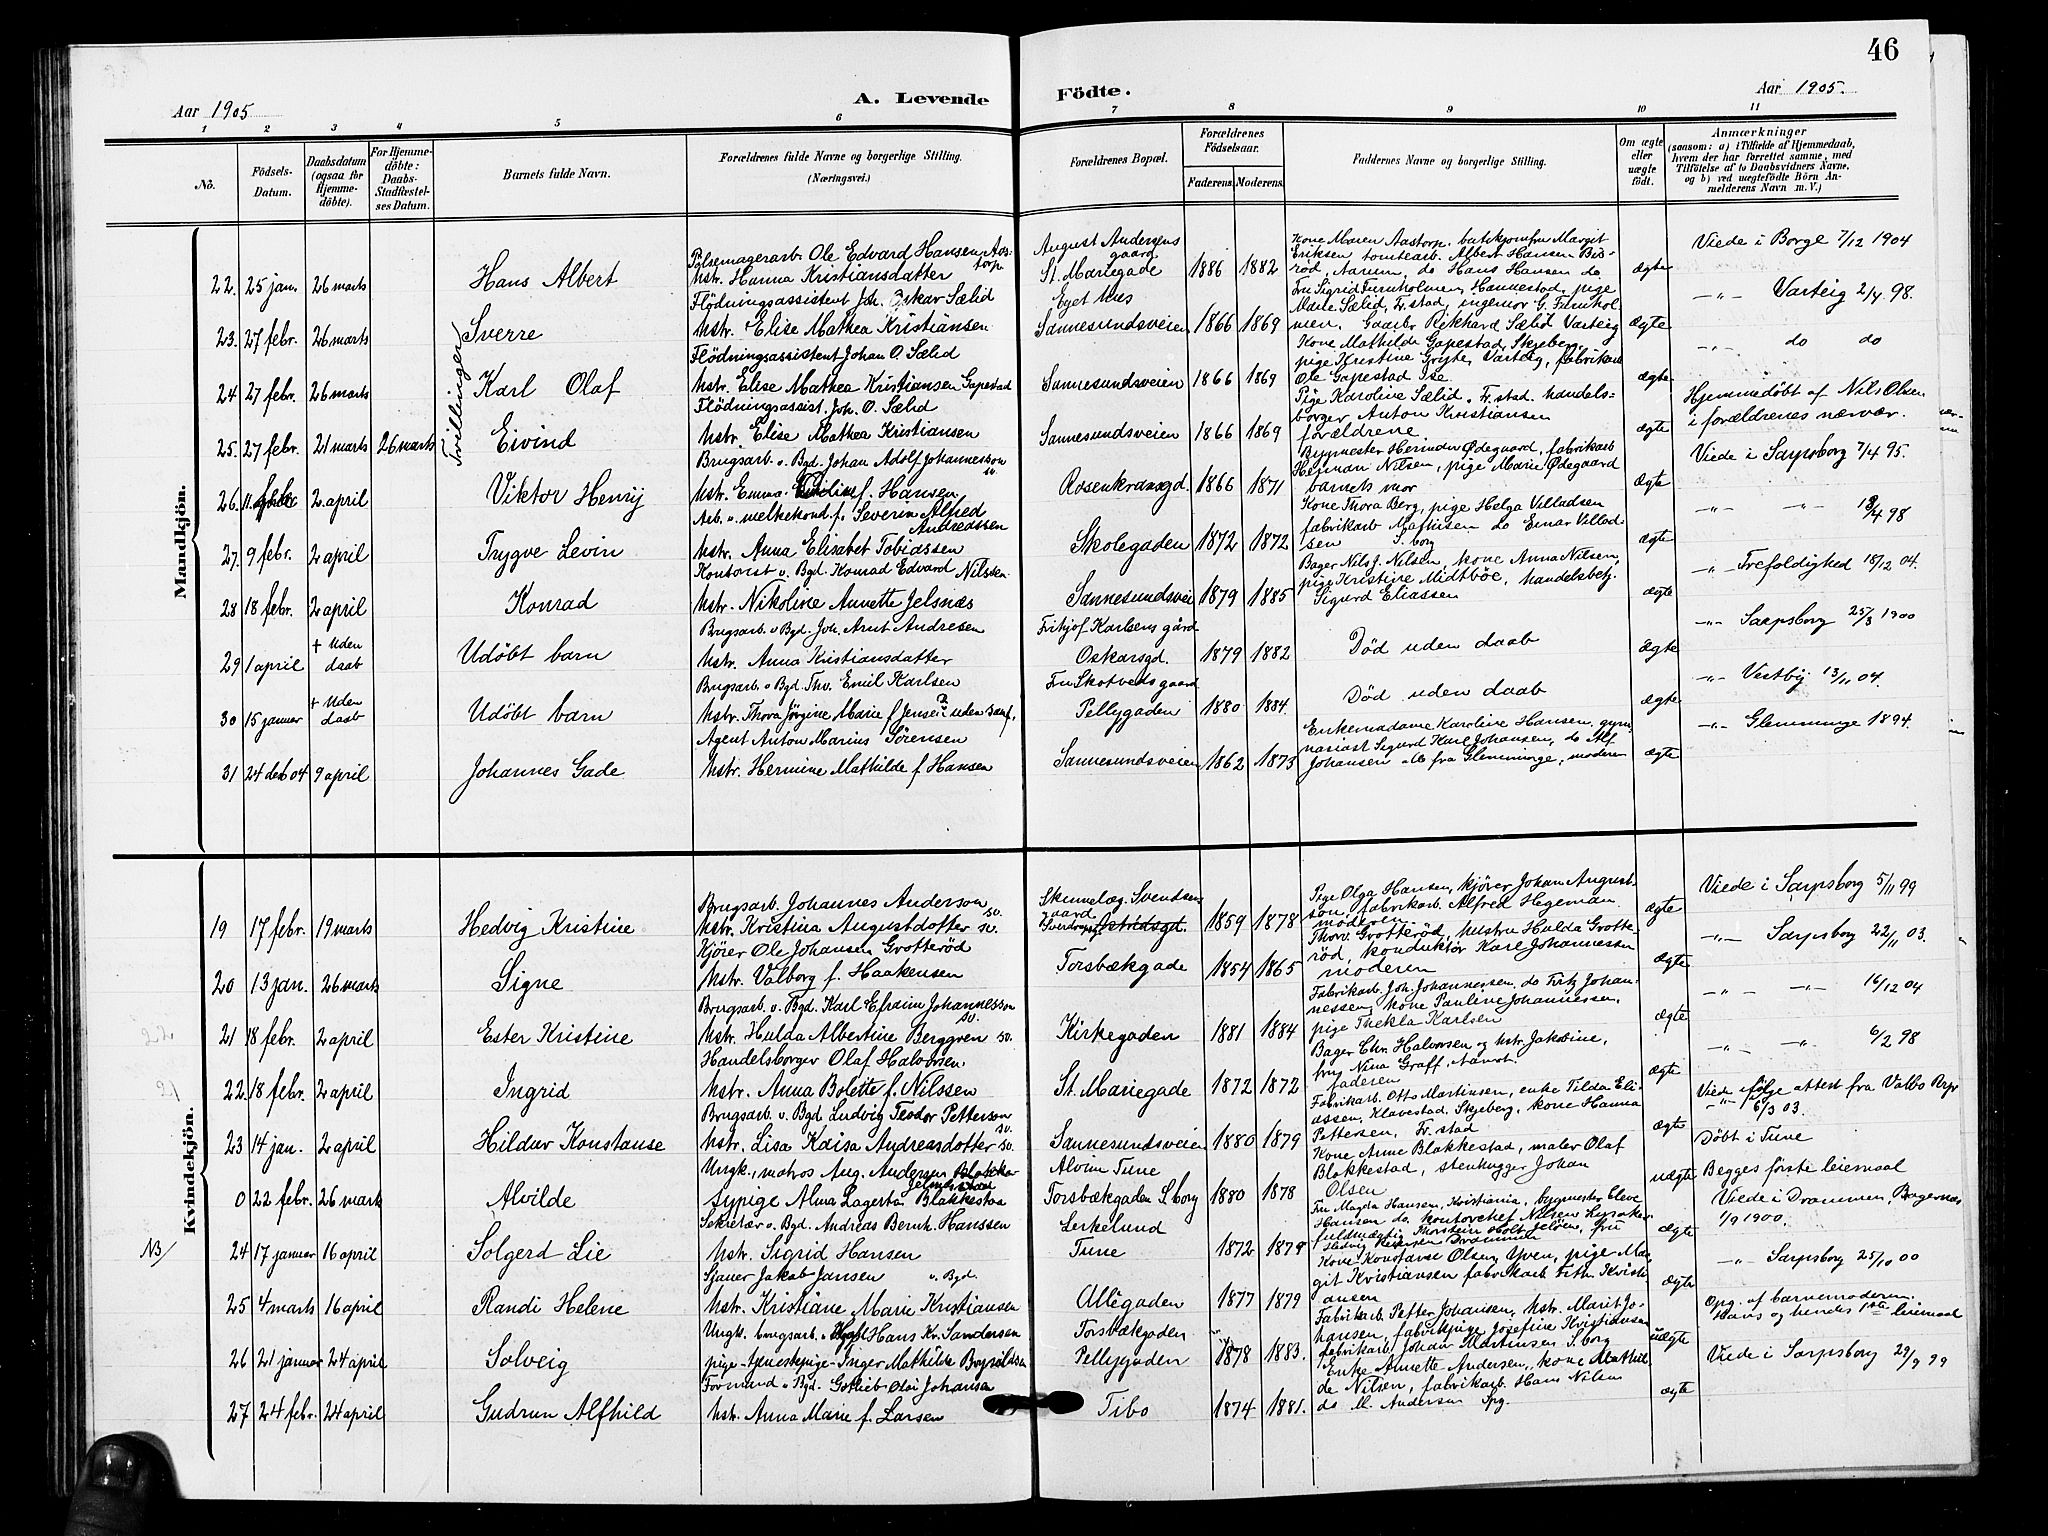 46
Aar 1905
A. Levende Födte.
Aar 1905.
1 2 3 4 5 6 7 8 9 10 11
No.
Födsels-Datum.
Daabsdatum (ogsaa for Hjemme-döbte).
For Hjemme-döbte: Daabs-Stadfæstel-ses Datum.
Barnets fulde Navn.
Forældrenes fulde Navne og borgerlige Stilling.
(Næringsvei.)
Forældrenes Bopæl.
Forældrenes Födselsaar.
Faderens. Moderens.
Faddernes Navne og borgerlige Stilling.
Om ægte eller uægte födt.
Anmærkninger
(saasom: a) i Tilfælde af Hjemmedaab, hvem der har forrettet samme, med Tilföielse af to Daabsvidners Navne, og b) ved uægtefödte Börn An-melderens Navn m. V.)
Mandkjön.
22. 25 jan. 26 marts Hans Albert
Pølsemagerarb. Ole Edvard Hansen Aastorp
hstr. Hanna Kristiansdatter
August Andersens gaard
St. Mariegade 1886 1882
Kone Maren Aastorp, Margit
Eriksen tomtearb. Albert Hansen
Aarum, do Hans Hansen do.
ægte
Viede i Borge 7/12 1904
23. 27 febr. 26 marts Sverre
Trillinger
Flödningsassistent Joh. Oskar Sælid
hstr. Elise Mathea Kristiansen
Eget hus
Sannesundsveien 1866 1869
Fru Sigrid Furuholmen, Hannestad, pige
Marie Sælid, Fr.stad, ingeniør G. Furuhol-
men, Gaarbr. Rikhard Sælid Varteig
ægte
-"- Varteig 2/4 98.
24 27 febr. 26 marts Karl Olaf
Flödningsassistent Johan O. Sælid
hstr. Elise Mathea Kristiansen Gapestad
Sannesundsveien 1866 1869
Kone Mathilde Gapestad, Skjeberg,
pige Kristine Varteig, fabrikarb
Ole Gapestad Ise
ægte
-"- do do
25. 27 febr. 21 marts 26 marts Eivind
Flödningsassist. Joh. O. Sælid
hstr. Elise Mathea Kristiansen
Sannesundsveien 1866 1869
Pige Karoline Sælid, Fr.stad. handels-
borger Anton Kristiansen
forældrene
ægte
Hjemmedøbt af Nils Olsen
i forældrenes nærvær.
26. 2 april Viktor Henry
Brugsarb. o. Bgd. Johan Adolf Johannesson sv.
hstr. Emma f. Hansen
Rosenkransgd. 1866 1871
Bygmester Ødegaard, fabrikarb
Herman Nilsen, pige Marie Ødegaard
barnets mor
ægte
Viede i Sarpsborg 7/4 95.
27. 9 febr. 2 april Trygve Levin
Arb. o. melkekond. f. Severin Alfred Andreassen
hstr. Anna Elisabet Tobiassen
Skolegaden 1872 1872
Kone Thora Berg, pige Helga Villadsen
fabrikarb Mathisen do Einar Villad-
sen S.borg
ægte
-"- -"- /4 98
28 18 febr. 2 april Konrad
Kontorist o. Bgd. Konrad Edvard Nilssen
hstr. Nikoline Annette Jelsnæs
Sannesundsvei 1879 1885
Bager Nils J. Nilsen, kone Anna Nilsen,
pige Kristine Midtböe, handelsbetj.
Sigurd Eliassen
ægte
-"- Trefoldighed 18/12 04.
29 1 april † Uden daab Udöbt barn
Brugsarb. o Bgd. Joh. Arnt Andresen
hstr. Anna Kristiansdatter
Frithjof Karlsens gård
Oskarsgd. 1879 1882
Död uden daab
ægte
-"- Sarpsborg 25/3 1900
30 15 januar † Uden daab Udöbt barn
Brugsarb. o Bgd. Thv. Emil Karlsen
hstr. Thora Jörgine Marie f. Jensen
Fru Skotveds gaard
Pellygaden 1880 1884.
Död uden daab
ægte
-"- Vestby 13/11 04.
31 24 des 04 9 april Johannes Gade
Agent Anton Marius Sörensen
hstr. Hermine Mathilde f. Hansen
Sannesundsveien 1862 1873
Enkemadame Karoline Hansen, gym-
nasiast Sigurd Karl Johansen, do Alf
Johansen alle fra Glemminge, moderen
ægte
-"- Glemminge 1894.
Kvindekjön.
19 17 febr. 19 marts Hedvig Kristine
Brugsarb. Johannes Anderson sv.
hstr. Kristina Augustdotter sv.
Svendsens gaard 1859 1878
Pige Olga Hansen, kjörer Johan August-
son, fabrikarb. Alfred Hegeman.
moderen
ægte
Viede i Sarpsborg 5/11 99
20 13 jan. 26 marts Signe
Kjörer Ole Johansen Grotteröd
hstr. Valborg f. Haakensen
Torsbækgade 1854 1865
Thorv. Grotteröd, hustru Hulda Grotte-
röd, konduktör Karl Johannessen
moderen
ægte
-"- Sarpsborg 22/11 03.
21 18 febr. 2 april Ester Kristine
Brugsarb. o. Bgd. Karl Efraim Johannesson sv.
hstr. Hulda Albertine Berggren sv.
Kirkegaden 1881 1884
Fabrikarb. Joh. Johannessen, do Fritz Johan-
nessen, kone Pauline Johannessen,
pige Thekla Karlsen
ægte
-"- -"- 16/12 04
22
22. 18 febr. 2 april Ingrid
Handelsborger Olaf Halvorsen
hstr. Anna Bolette f. Nilssen
St. Mariegade 1872 1872
Bager Chr. Halvorsen og hstr. Jakobine,
fru Nina Graff,
faderen
ægte
-"- -"- 6/2 98
21
23 14 jan. 2 april Hildur Konstanse
Brugsarb. o. Bgd Ludvig Teodor Petterson sv.
hstr. Lisa Kaisa Andreasdotter sv.
Sannesundsveien 1880 1879
Fabrikarb. Otto Martinsen, enke Tilda Eli-
assen, Klavestad, Skjeberg, kone Hanna
Pettersen, Fr.stad
ægte
Viede ifølge attest fra Valbo
-"- 6/3 03.
0 22 febr. 26 marts Alvilde
Ungk., matros Aug. Andersen
sypige Alma Lagerta Blakkestad
Alvim Tune
Torsbækgaden S.borg 1880 1878
Kone Anne Blakkestad, maler Olaf
Blakkestad, stenhugger Johan
Olsen
uægte
Döbt i Tune
Begges förste leiemaal
NB/
24 17 januar 16 april Solgerd Lie
Sekretær o. Bgd. Andreas Bernh. Hanssen
hstr. Sigrid Hansen
Lerkelund
Tune 1872 1879
Fru Magda Hansen, Kristiania, bygmester Cleve
Hansen do. kontorchef Nilsen Lysaker
fuldmægtig Thorstein Holt Jelöen, fru
Hedvig Drammen
ægte
Viede i Drammen, Bragernæs
1/9 1900.
25 4 marts 16 april Randi Helene
Sjauer Jakob Jansen o. Bgd.
hstr. Kristiane Marie Kristiansen
Allégaden 1877 1879
Kone Konstanse Olsen, Yven, pige Mar-
git Kristiansen fabrikarb. Frth. Kristi-
ansen
ægte
-"- Sarpsborg 25/10 00
26 21 januar 24 april Solveig
Ungk. brugsarb. Hans Kr. Sandersen
pige - tjenestepige - Inger Mathilde
Torsbækgaden
Pellygaden 1878 1883.
Fabrikarb. Petter Johansen, hstr. Marit Jo-
hansen, fabrikpige Josefine Kristiansen
fabrikarb. Johan Martinsen S.borg
uægte
Opg. af barnemoderen.
Hans og hendes 1ste leiemaal
27 24 febr. 24 april Gudrun Alfhild
Formand o Bgd. Gotlieb Johansen
hstr. Anna Marie f. Larsen
Tibo 1874 1881.
Enke Annette Andersen, kone Mathil-
de Nilsen, fabrikarb. Hans Nilsen
do M. Andersen Spg.
ægte
Viede i Sarpsborg 29/9 99